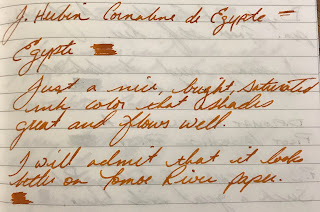 J. Herbin Cornaline de Egypte —
Egypte
Just a nice, bright, saturated
ink color that shades
great and flows well.
I will admit that it looks
better on Tomoe River paper.